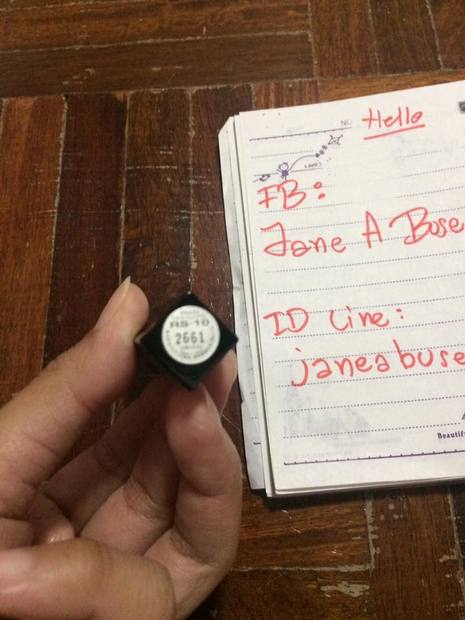 NO
Hello
FB:
Jane A Buse
ID Line:
janeabuse
RS-10
2661